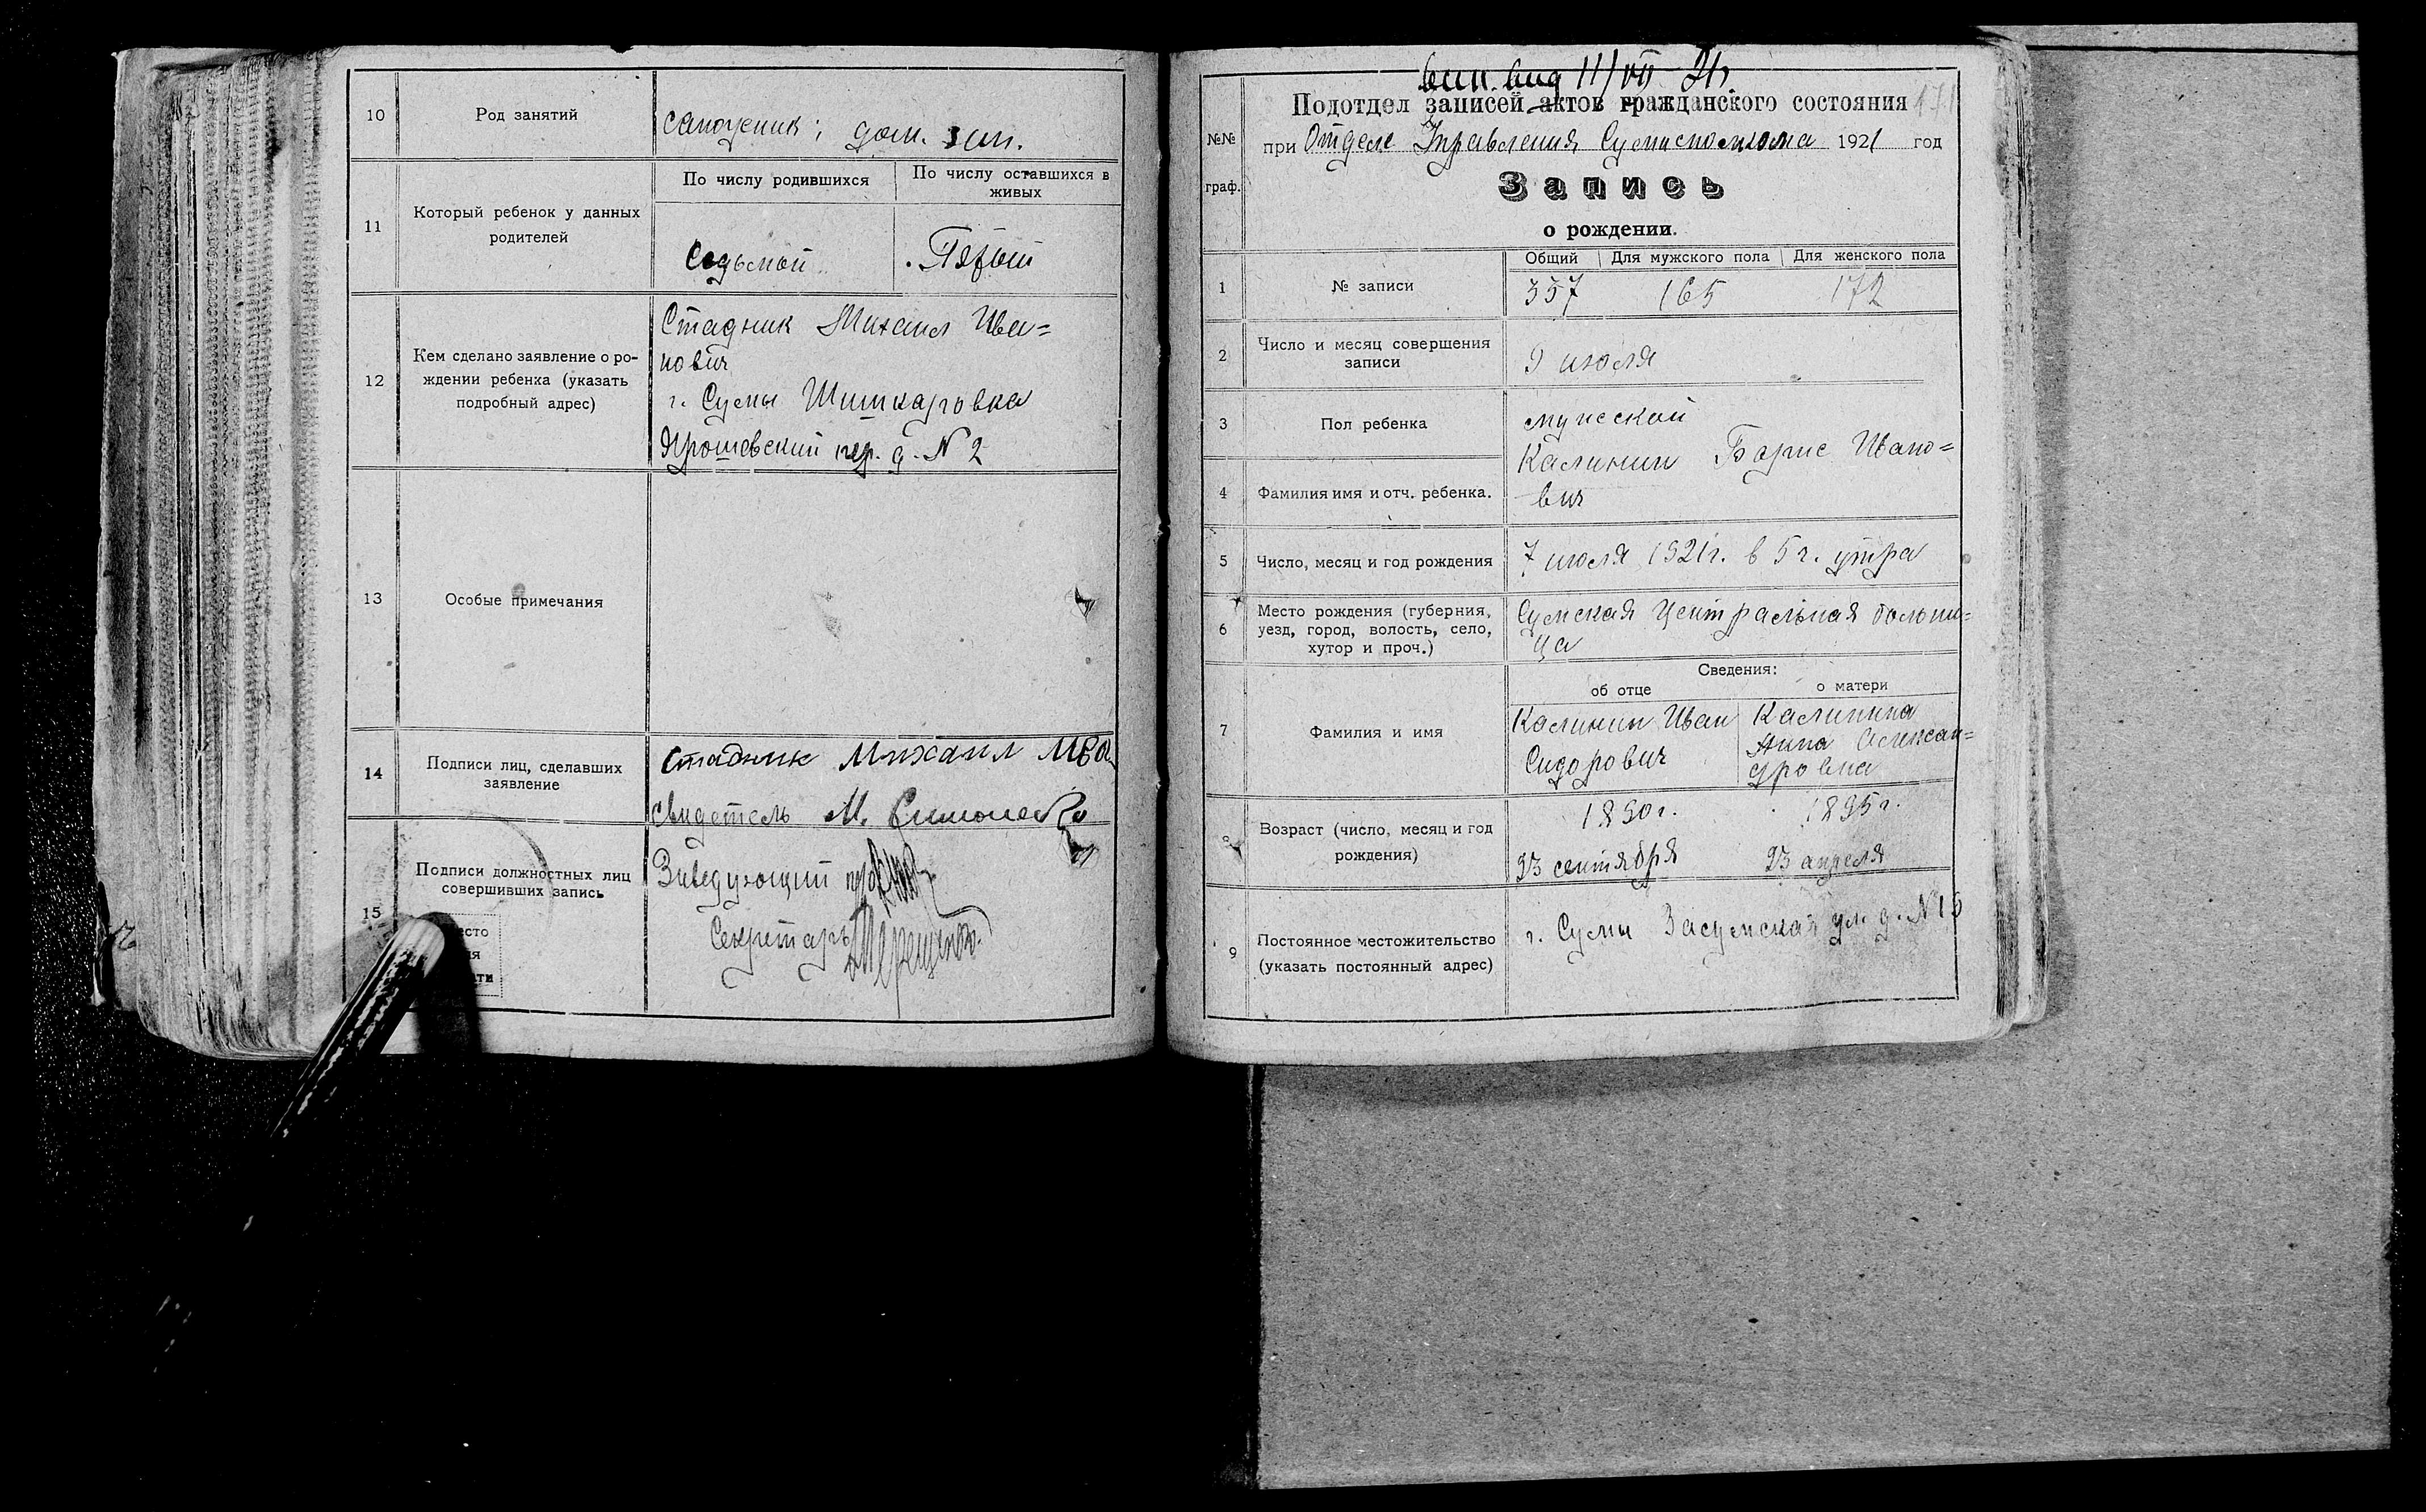 10
Род занятий
сапожник; дом. хоз.
11
Который ребенок у данных
родителей
По числу родившихся
По числу оставшихся в
живых
Седьмой
Пятый
12
Кем сделано заявление о ро-
ждении ребенка (указать
подробный адрес)
Стадник Михаил Ива=
нович
г. Сумы Шишкаровка
Ярошевский пер. д. N 2
13
Особые примечания
14
Подписи лиц, сделавших
заявление
Стадник Михаил Ива
свидетель М.
15
Подписи должностных лиц
совершивших запись
Заведующий
Секретарь Терещенко.
вып. вид 11/VII 21г.
Подотдел записей актов гражданского состояния
№№
граф.
при Отделе Управления Сумисполкома 1921 год
Запись
о рождении.
1
№ записи
Общий Для мужского пола Для женского пола
357 165 172
2
Число и месяц совершения
записи
9 июля
3
Пол ребенка
мужской
4
Фамилия имя и отч. ребенка.
Калинин Борис Ивано=
вич
5
Число, месяц и год рождения
7 июля 1921г. в 5 ч. утра
6
Место рождения (губерния,
уезд, город, волость, село,
хутор и проч.)
Сумская Центральная больни=
ца
Сведения:
об отце
о матери
7
Фамилия и имя
Калинин Иван
Сидорович
Калинина
Анна Алексан=
дровна
8
Возраст (число, месяц и год
рождения)
1890г.
23 сентября
1895г.
23 апреля
9
Постоянное местожительство
(указать постоянный адрес)
г. Сумы Засумская ул. д. N 15